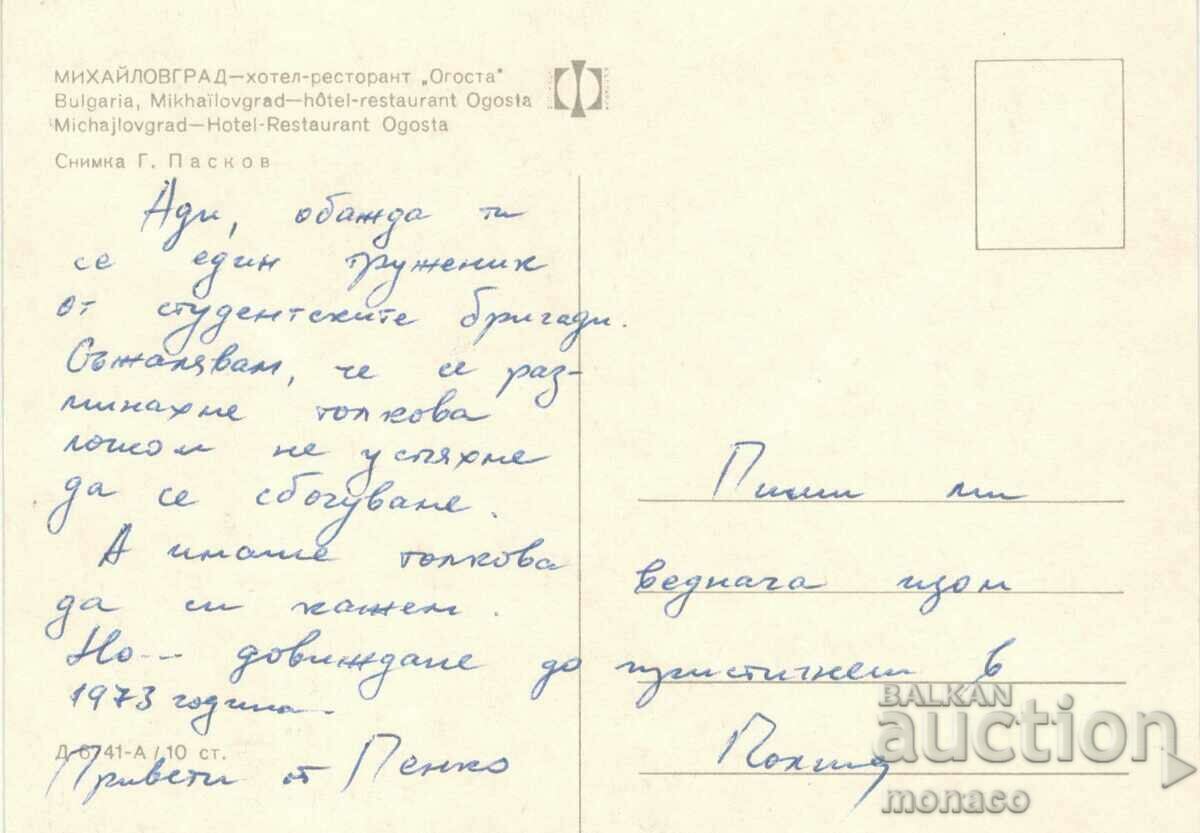 МИХАЙЛОВГРАД—хотел-ресторант „Огоста"
Bulgaria, Mikhaïlovgrad—hôtel-restaurant Ogosta
Michajlovgrad—Hotel-Restaurant Ogosta
Снимка Г. Пасков
Ади, обажда ти
се един труженик
от студентските бригади.
Съжалявам, че се раз-
минахме толкова
лошо и не успяхме
да се сбогуваме.
А имаше толкова
да си кажем.
Но--- довиждане до
1973 година.
Д-6741-А / 10 ст.
Привети от Пенко
Пиши ми
веднага щом
пристигнеш в
BALKAN
auction
monaco